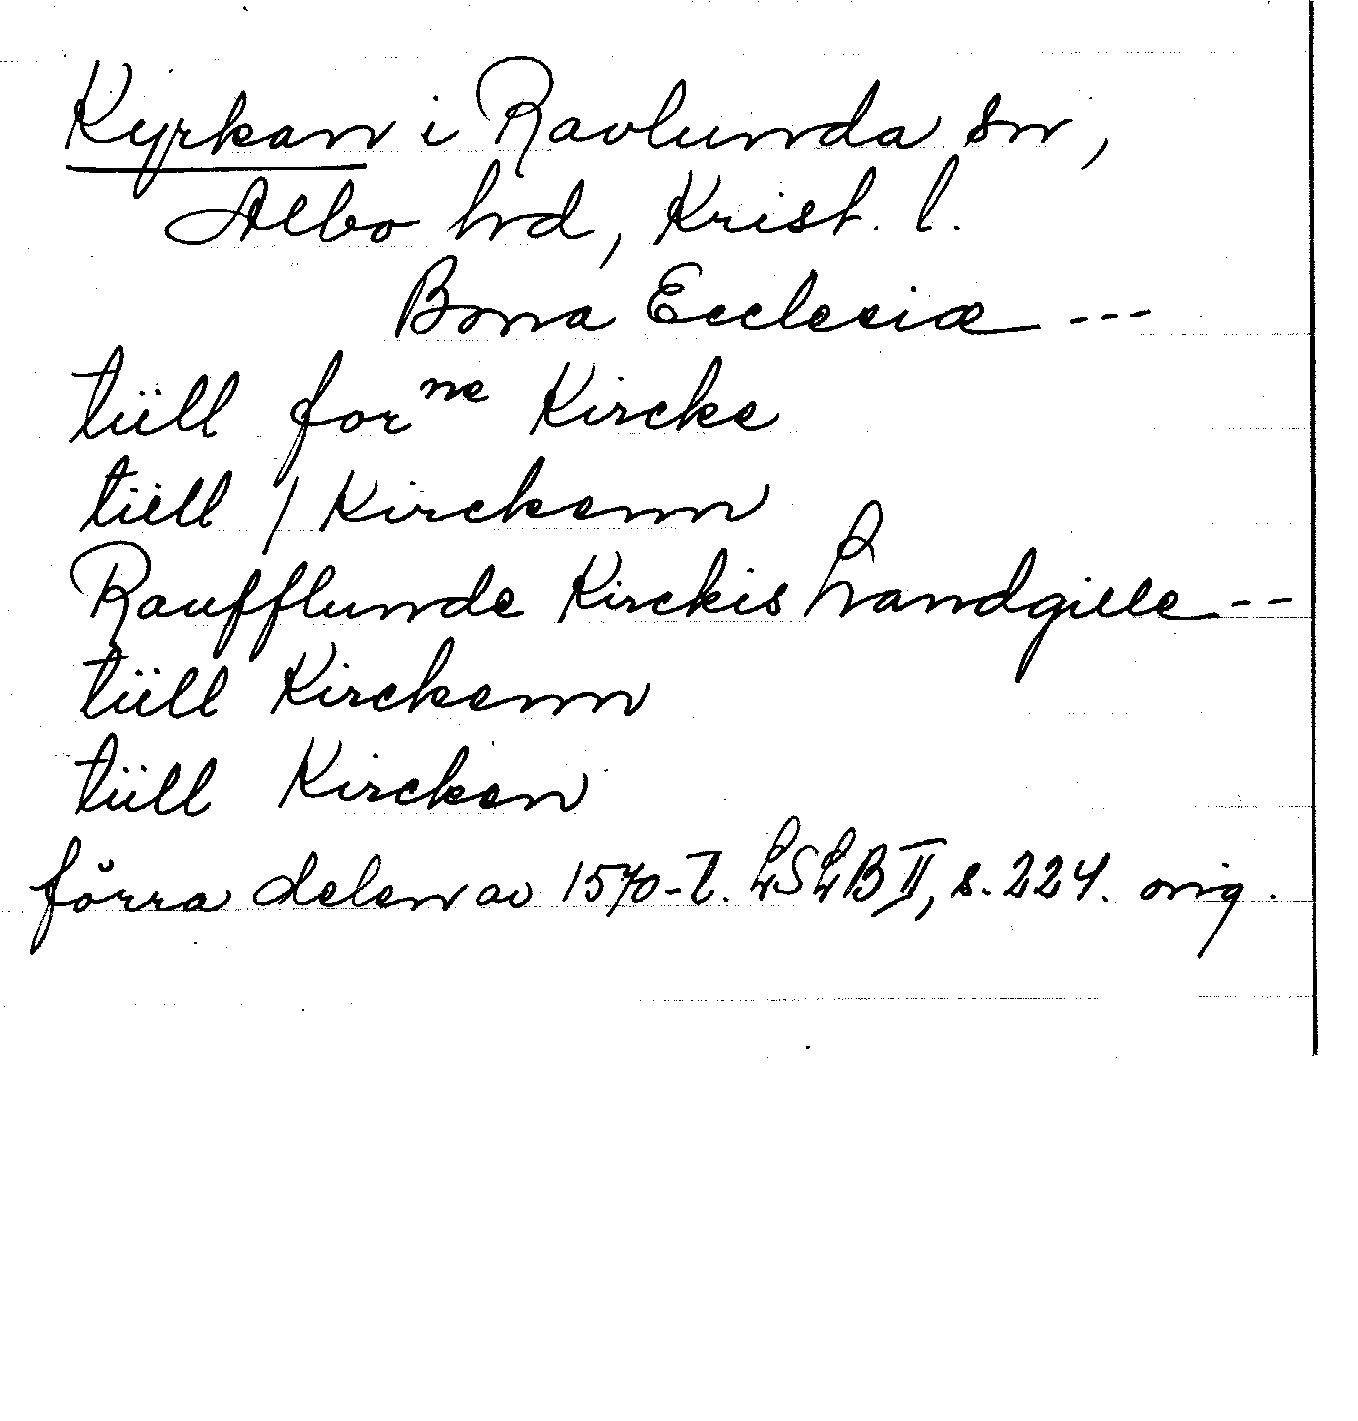 Kyrkan i Ravlunda sn,
Albo hd, Krist. l.
Bona Ecclesiæ ---
tiill for ne Kircke
tiill / Kirckenn
Raufflunde Kirckis Landgille --
tiill Kirckenn
tiill Kircken
förra delen av 1570-t. LSLB II, s. 224. orig.